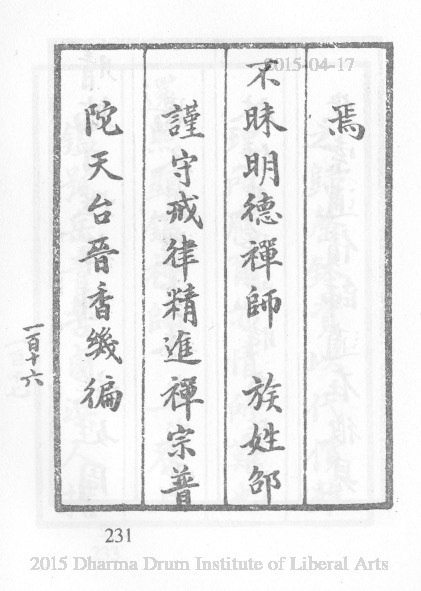 2015-04-17
焉
不昧明德禪師　族姓邵
謹守戒律精進禪宗普
陀天台晉香幾徧
一百十六
231
2015 Dharma Drum Institute of Liberal Arts